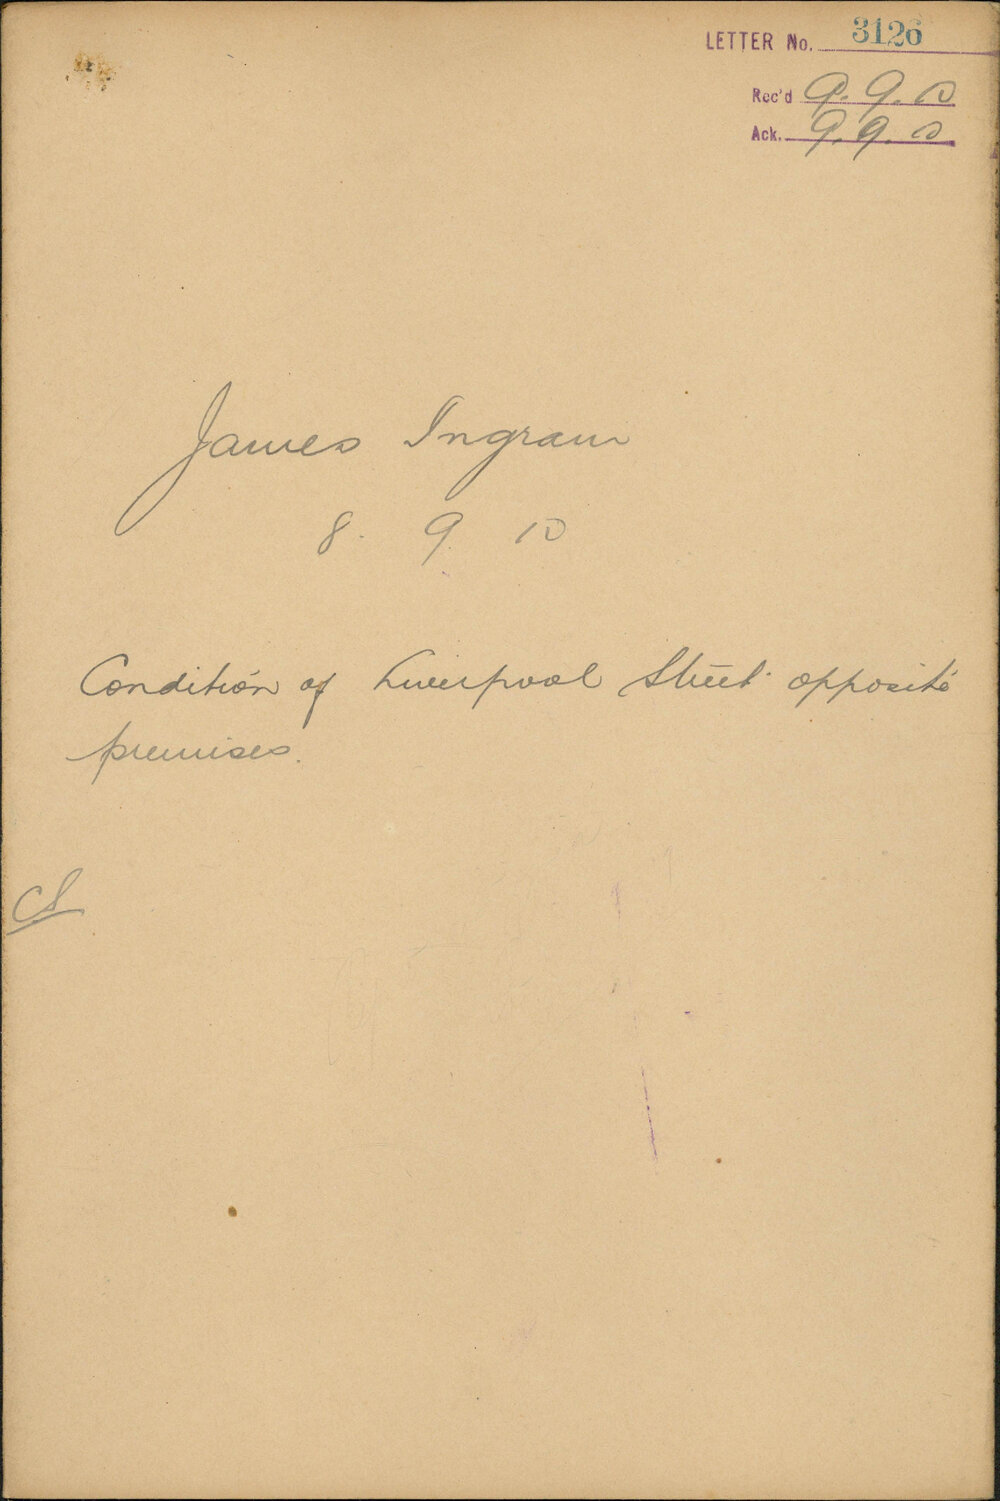 LETTER No. 3126
Rec'd 9.9.10
Ack. 9.9.10
James Ingram
8. 9. 10
Condition of Liverpool Street opposite
premises.
CS